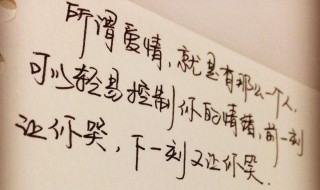 所谓爱情,就是有那么一个人,
可以轻易控制你的情绪,前一刻
让你哭,下一刻又让你笑.